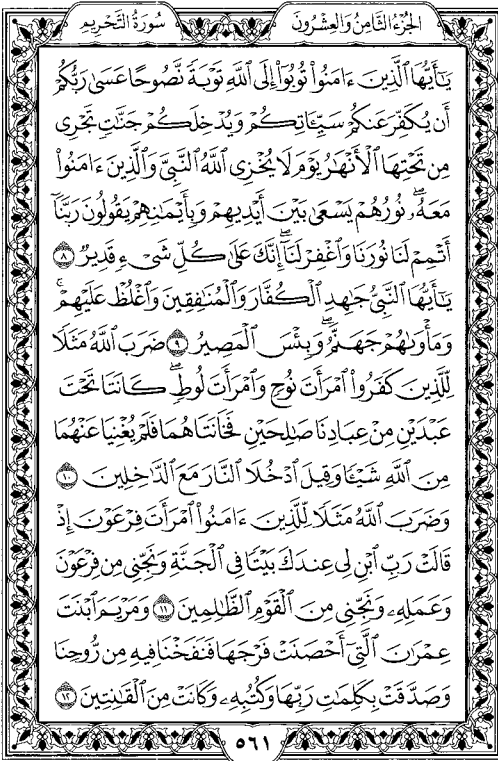 الجزء الثامن والعشرون
سورة التحريم
يَٰٓأَيُّهَا ٱلَّذِينَ ءَامَنُوا۟ تُوبُوٓا۟ إِلَى ٱللَّهِ تَوْبَةً نَّصُوحًا عَسَىٰ رَبُّكُمْ
أَن يُكَفِّرَ عَنكُمْ سَيِّـَٔاتِكُمْ وَيُدْخِلَكُمْ جَنَّٰتٍ تَجْرِى
مِن تَحْتِهَا ٱلْأَنْهَٰرُ يَوْمَ لَا يُخْزِى ٱللَّهُ ٱلنَّبِىَّ وَٱلَّذِينَ ءَامَنُوا۟
مَعَهُۥ ۖ نُورُهُمْ يَسْعَىٰ بَيْنَ أَيْدِيهِمْ وَبِأَيْمَٰنِهِمْ يَقُولُونَ رَبَّنَآ
أَتْمِمْ لَنَا نُورَنَا وَٱغْفِرْ لَنَآ ۖ إِنَّكَ عَلَىٰ كُلِّ شَىْءٍ قَدِيرٌ ٨
يَٰٓأَيُّهَا ٱلنَّبِىُّ جَٰهِدِ ٱلْكُفَّارَ وَٱلْمُنَٰفِقِينَ وَٱغْلُظْ عَلَيْهِمْ ۚ
وَمَأْوَىٰهُمْ جَهَنَّمُ ۖ وَبِئْسَ ٱلْمَصِيرُ ٩ ضَرَبَ ٱللَّهُ مَثَلًا
لِّلَّذِينَ كَفَرُوا۟ ٱمْرَأَتَ نُوحٍ وَٱمْرَأَتَ لُوطٍ ۖ كَانَتَا تَحْتَ
عَبْدَيْنِ مِنْ عِبَادِنَا صَٰلِحَيْنِ فَخَانَتَاهُمَا فَلَمْ يُغْنِيَا عَنْهُمَا
مِنَ ٱللَّهِ شَيْـًٔا وَقِيلَ ٱدْخُلَا ٱلنَّارَ مَعَ ٱلدَّٰخِلِينَ ١٠
وَضَرَبَ ٱللَّهُ مَثَلًا لِّلَّذِينَ ءَامَنُوا۟ ٱمْرَأَتَ فِرْعَوْنَ إِذْ
قَالَتْ رَبِّ ٱبْنِ لِى عِندَكَ بَيْتًا فِى ٱلْجَنَّةِ وَنَجِّنِى مِن فِرْعَوْنَ
وَعَمَلِهِۦ وَنَجِّنِى مِنَ ٱلْقَوْمِ ٱلظَّٰلِمِينَ ١١ وَمَرْيَمَ ٱبْنَتَ
عِمْرَٰنَ ٱلَّتِىٓ أَحْصَنَتْ فَرْجَهَا فَنَفَخْنَا فِيهِ مِن رُّوحِنَا
وَصَدَّقَتْ بِكَلِمَٰتِ رَبِّهَا وَكُتُبِهِۦ وَكَانَتْ مِنَ ٱلْقَٰنِتِينَ ١٢
٥٦١